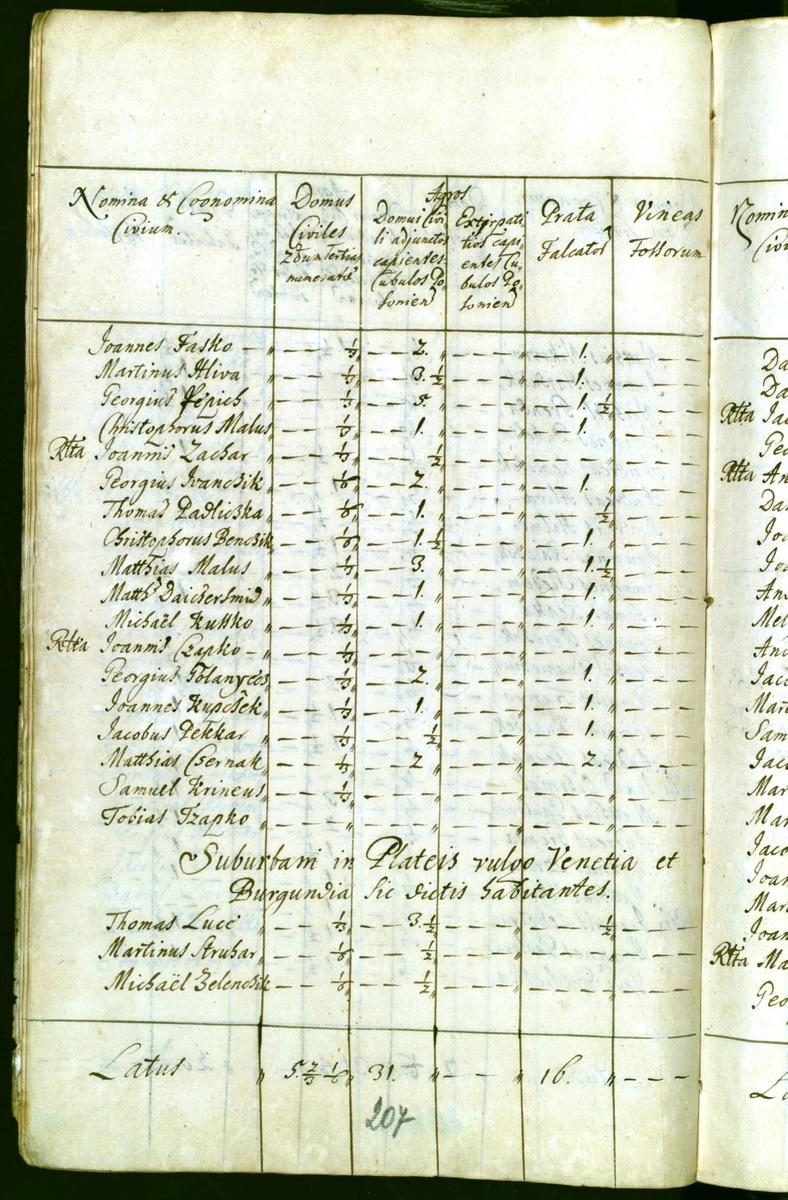 Nomina & Cognomina Civium. Domus Civiles Agros Prata Falcator Vineas Fossorum
Domui Civili adjunctos capientes Cubulos Posonien
Extirpatitios capientes Cubulos Posonien
numeratis
Joannes Fasko – „ – – 1/3 – 2. „ – – – „ – 1. „ – – –
Martinus Hliva „ – – 1/3 – 3. 1/2 – – – „ – 1. „ – – –
Georgius „ – – 1/3 – 5. „ – – – „ – 1. 1/2 – – –
Christophorus Malus „ – – 1/3 – 1. „ – – – „ – 1. „ – – –
Rtta Joannis Zachar „ – – 1/3 – 1/2 – – – „ – – „ – – –
Georgius Ivanchik „ – – 1/6 – 2. „ – – – „ – 1. „ – – –
Thomas Padliczka „ – – 1/6 – 1. „ – – – „ – 1/2 – – –
Christophorus Benczik „ – – 1/6 – 1. 1/2 – – – „ – 1. „ – – –
Matthias Malus „ – – 1/3 – 3. „ – – – „ – 1. 1/2 – – –
Matth Daichersmid „ – – 1/3 – 1. „ – – – „ – 1. „ – – –
Michaël Kussko „ – – 1/3 – 1. „ – – – „ – 1. „ – – –
Rtta Joannis Czapko – „ – – 1/3 – – „ – – – „ – – „ – – –
Georgius Tolanyecs „ – – 1/3 – 2. „ – – – „ – 1. „ – – –
Joannes Kupcsek „ – – 1/3 – 1. „ – – – „ – 1. „ – – –
Jacobus Pekkar „ – – 1/3 – 1/2 – – – „ – 1. „ – – –
Matthias Csernak „ – – 1/3 – 2 „ – – – „ – 2. „ – – –
Samuel Krineus „ – – 1/3 – – „ – – – „ – – „ – – –
Tobias Tzapko „ – – „ – – „ – – – „ – – „ – – –
Suburbani in Plateis vulgo Venetia et
Burgundia sic dictis habitantes.
Thomas Lucc „ – – 1/3 – 3. 1/2 – – – „ – 1/2 – – –
Martinus Struhar „ – – 1/6 – 1/2 – – – „ – – „ – – –
Michaël Zelenchik „ – – 1/6 – 1/2 – – – „ – – „ – – –
Latus „ 5. 2/3 1/6 31. „ – – „ 16. „ – – –
207
Nomin
Civi
Da
Da
Rtta Jac
Geo
Rtta An
Dan
Joa
Joa
And
Mel
And
Jaco
Mar
Sam
Jaco
Mar
Mar
Jaco
Joan
Mar
Joan
Rtta Ma
Geo
La